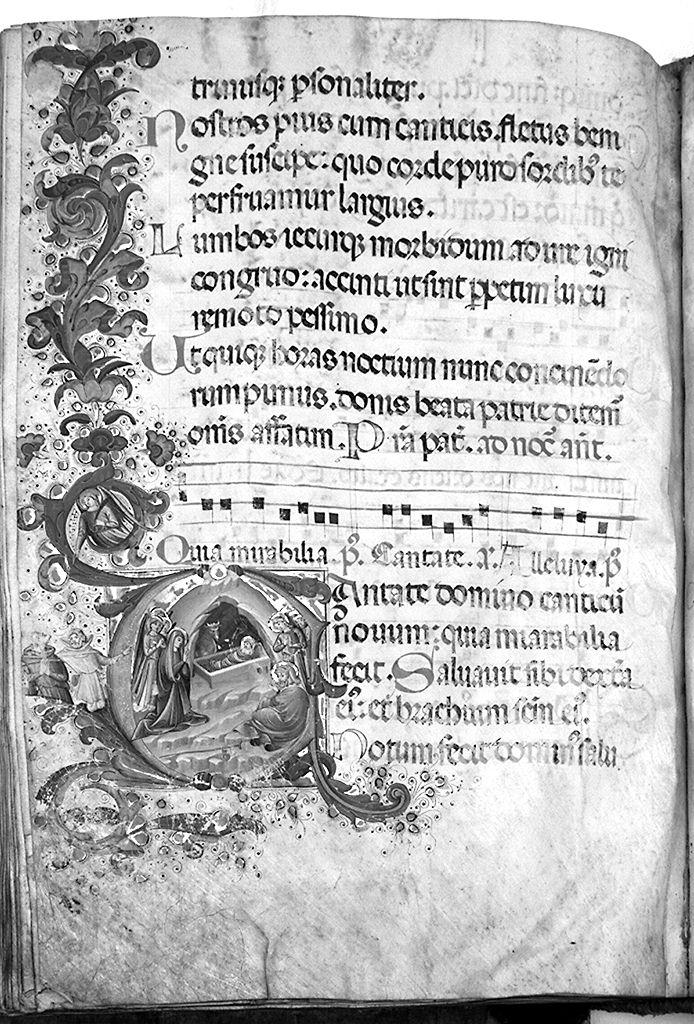 trinusq; psonaliter.
Nostros pius cum canticis. fletus beni
gne suscipe: quo corde puro sordib; te
perfruamur largius.
Lumbos iecurq; morbidum adure igni
congruo: accincti ut sint ppetim luxu
remoto pessimo.
Ut quiq; horas noctium nunc concinēdo
rumpimus. donis beate patrie ditem
omīs affatim. P ria pat. ad noct añt.
Quia mirabilia. p̄. Cantate. a. Alleluya. p̄
Cantate domino canticū
novum: quia mirabilia
fecit. Salvavit sibi dextra
ei; et brachium scm ei.
Notum fecit domin; salu